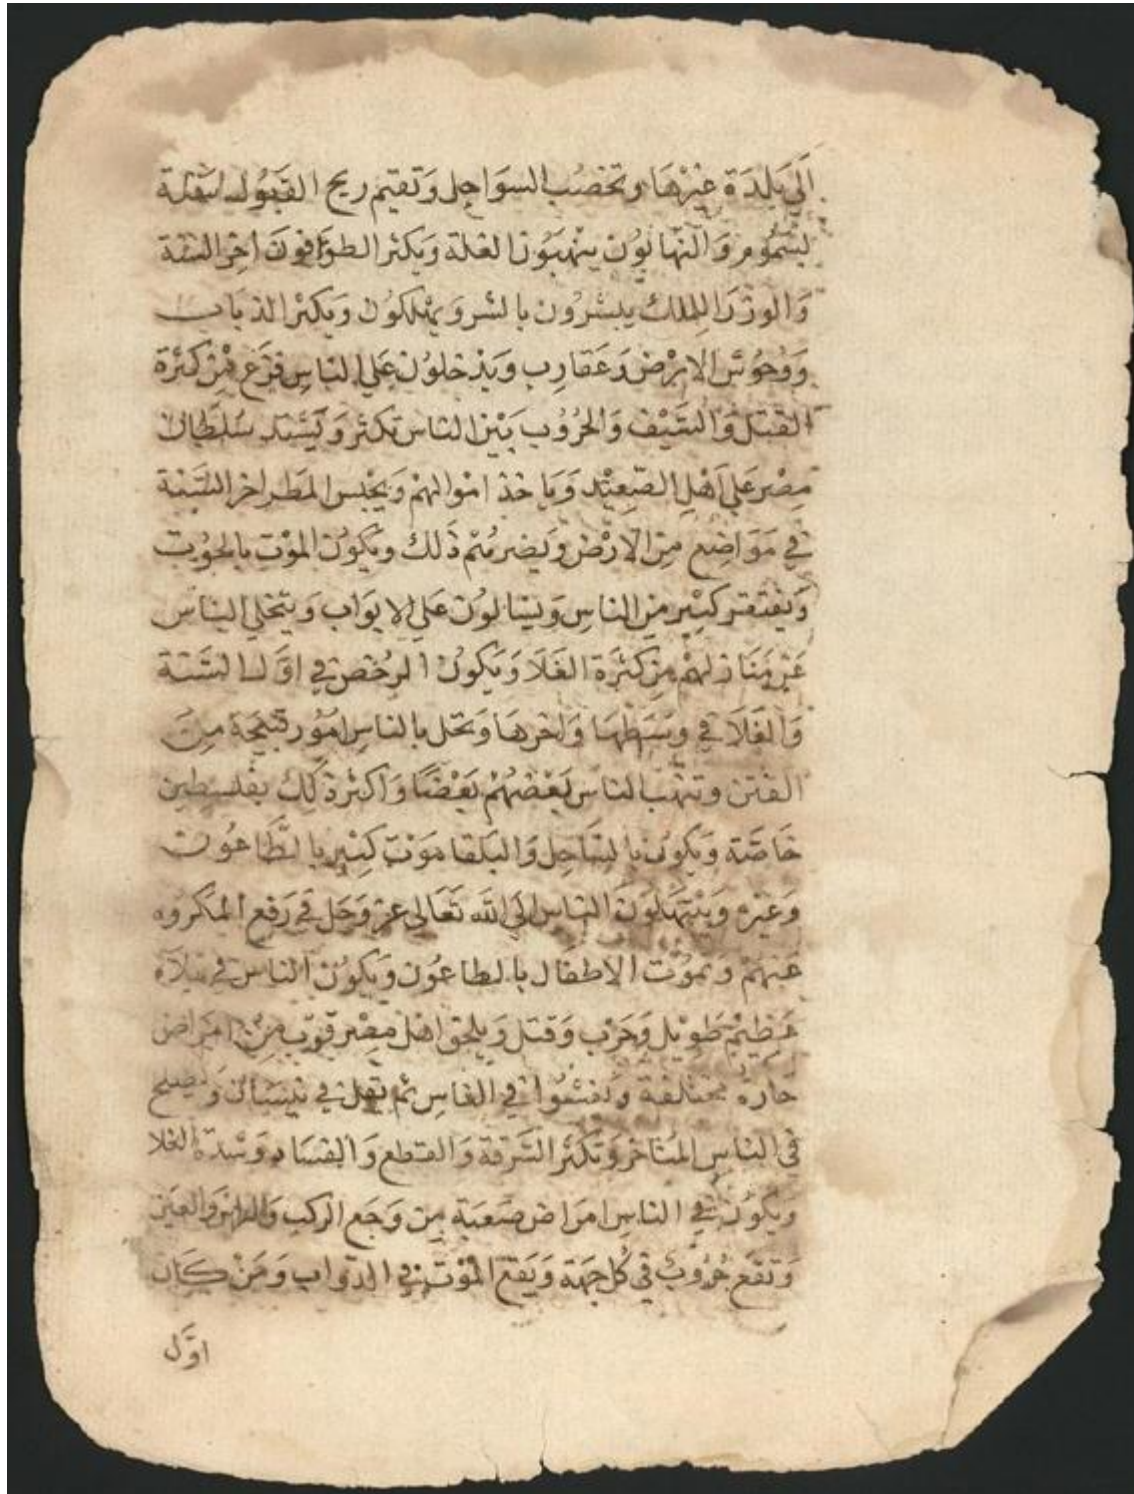 الَي بَلدَة غيْرهَا وتخصُب السوَاحِل وَتقيم ريح القَبُول
لسُمُوُم وَالنهابوُن ينهبَوُن الغلة وَيكثر الطوَافونَ اخر السَنة
وَالوزرَا للملك يبشرُون بالشر وَيهْلكوُن وَيكثر الذباب
وَوُحوُش الارْض وَعَقارِب وَيدْخلوُن عَلي الناسِ فزَع مْن كثرَة
القتل وَالسَيْف وَالحرُوُب بَيْن الناس تكثر وَيَشتد سُلطَان
مِصْر عَلي اَهْل الصَّعِيْد وَياخذ امْوالهمْ وَيحْبس المطَر اخر السَنة
في مَوَاضِع مِن الارْض وَيضرهُمْ ذَلك وَيكوُن الموْت بالجوُع
وَيفتقر كثيْر مِن الناسِ وَيسَالوُن عَلي الابوَاب وَيتخلي الناس
عَن مَنَازلهمْ مِن كثرَة الغَلَا وَيكوُن الرُخص في اوَّل السَنة
وَالغَلَا في وسَطهَا وَاخرهَا وَتحل بالناسِ امُوُر قبيْحَة مِنَ
الفتن وتنهَب الناس بَعْضهُمْ بَعْضًا وَاكثر ذَلك بفلسطين
خاصَّة وَيكوُن بالسَاحِل وَالبَلقا مَوْت كثِير بالطَّاعُوُن
وَغيْرِه وَيبْتهلوُنَ الناس الَي الله تَعَالي عز وَجَل في رَفع المكروُه
عَنهمْ وَتموُت الاطفَال بالطاعُون وَيكوُن الناس في بَلآء
عَظِيْم طَويْل وَحَرْب وَقتل وَيلحق اهْل مِصْر مِن امرَاض
حارة مختلفة وَتفشوُا في الناسِ ثم تقل في نيسَان وَيصلح
في الناسِ المتاخر وَتكثر السَّرقة وَالقطع وَالفسَاد وَشدة الغلا
وَيكوُن في الناسِ امرَاض صَعبَة مِن وَجَع الركب وَالراسَ وَالعيَن
وَتقع حُرُوُب في كُل جهَة وَيَقع الموْت في الدَوَاب وَمَنْ كَان
اوَّل